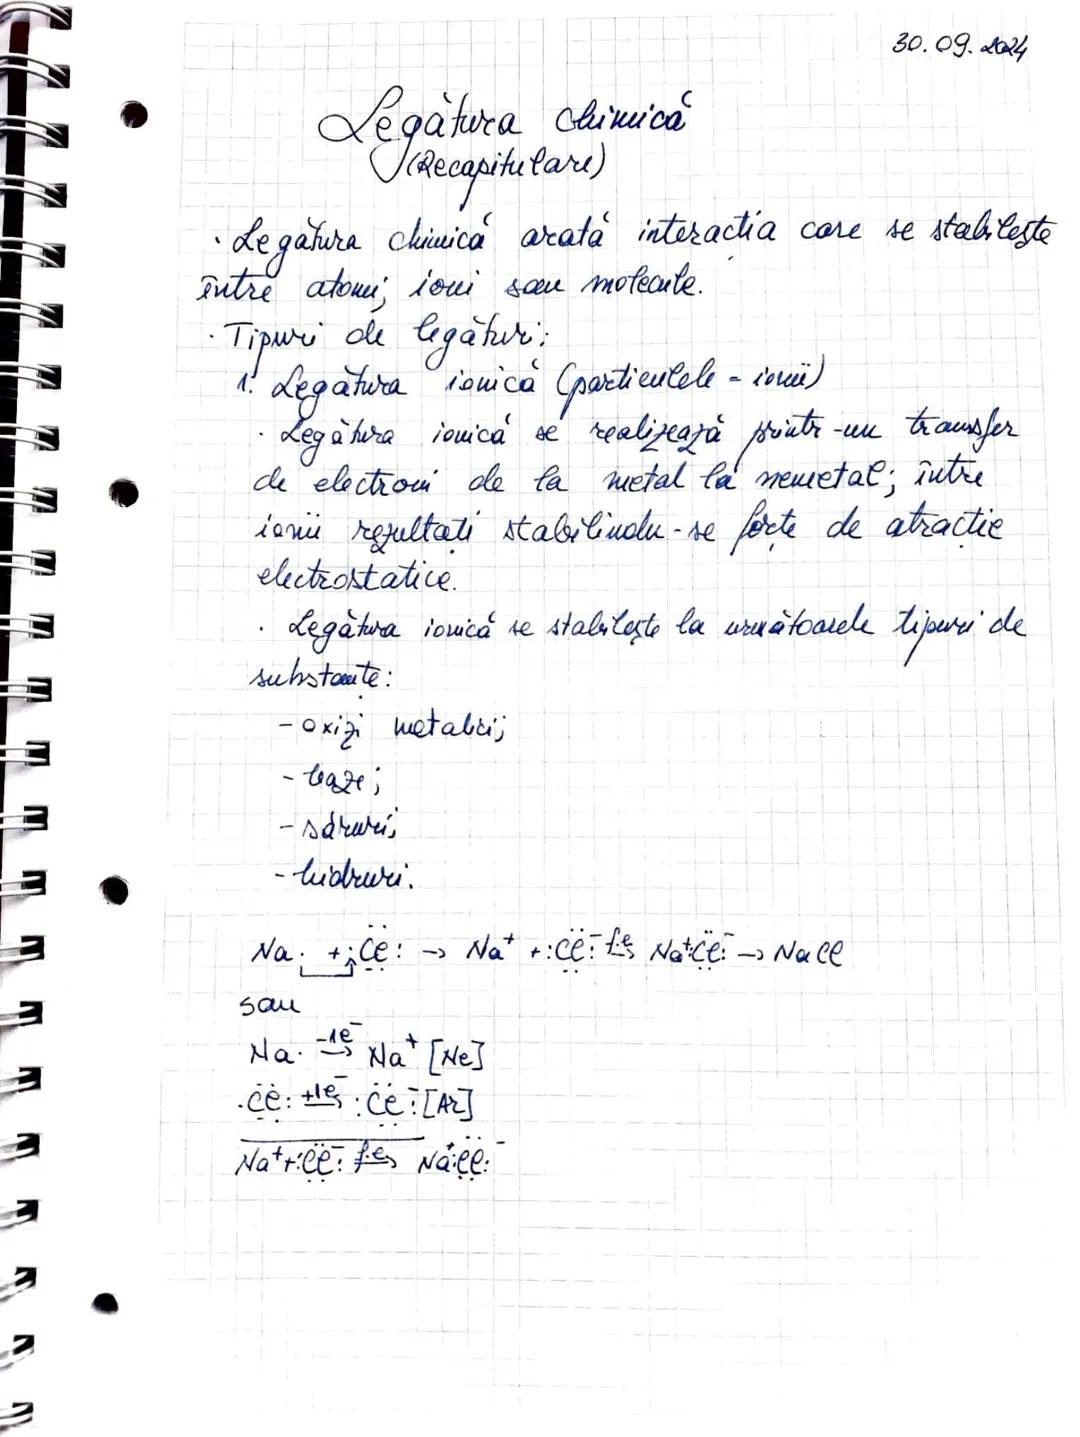 30.09.2024
Legătura chimică
(Recapitulare)
· Legătura chimică arată interactia care se stabilește
între atomi, ioni sau molecule.
· Tipuri de legături:
1. Legătura ionică (particulele - ionii)
· Legătura ionică se realizează printr-un transfer
de electroni de la metal la nemetal; între
ionii rezultati stabilindu-se forțe de atracție
electrostatice.
· Legătura ionică se stabilește la următoarele tipuri de
substante:
- oxizi metalici;
- baze;
- săruri;
- hidruri.
Na· + :C̈l: → Na⁺ + :C̈l:⁻ f.e→ Na⁺:C̈l:⁻ → NaCl
sau
Na· -1e⁻→ Na⁺ [Ne]
·C̈l: +1e⁻→ :C̈l:⁻ [Ar]
Na⁺ + :C̈l:⁻ f.e→ Na⁺:C̈l:⁻